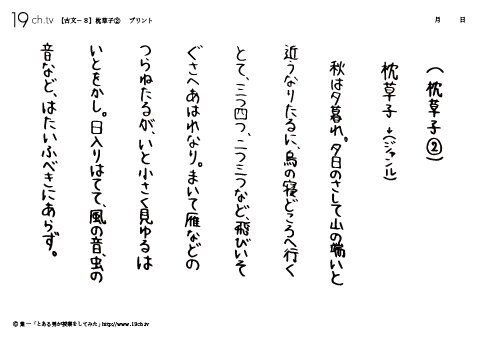 19ch.tv 【古文−8】枕草子② プリント
月 日
(枕草子②)
枕草子 ←(ジャンル)
秋は夕暮れ。夕日のさして山の端いと
近うなりたるに、烏の寝どころへ行く
とて、三つ四つ、二つ三つなど、飛びいそ
ぐさへあはれなり。まいて雁などの
つらねたるが、いと小さく見ゆるは
いとをかし。日入りはてて、風の音、虫の
音など、はたいふべきにあらず。
© 葉一「とある男が授業をしてみた」http://www.19ch.tv